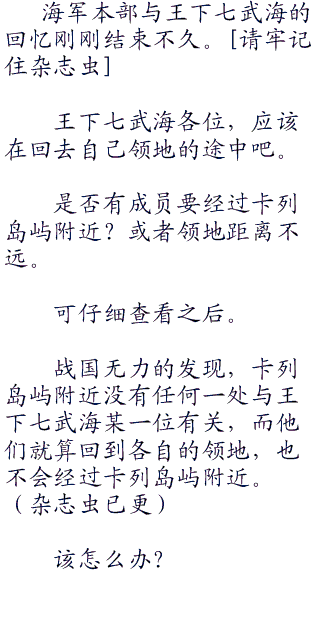 海军本部与王下七武海的
回忆刚刚结束不久。[请牢记
住杂志虫]
王下七武海各位，应该
在回去自己领地的途中吧。
是否有成员要经过卡列
岛屿附近？或者领地距离不
远。
可仔细查看之后。
战国无力的发现，卡列
岛屿附近没有任何一处与王
下七武海某一位有关，而他
们就算回到各自的领地，也
不会经过卡列岛屿附近。
（杂志虫已更）
该怎么办？